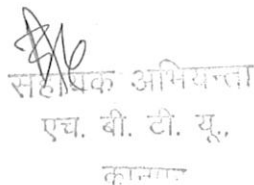 सहायक अभियन्ता
एच. बी. टी. यू.,
कानपुर